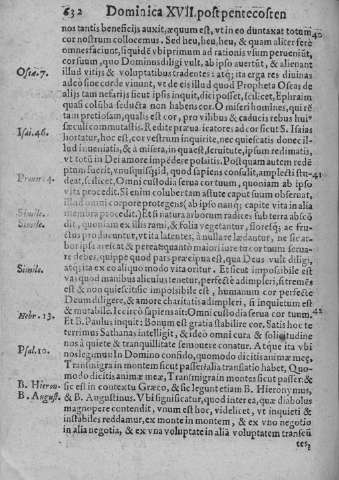 632 Dominica XVII. post pentecosten
nos tantis beneficijs auxit, æquum est, vt in eo duntaxat totum 40
cor nostrum collocemus. Sed heu, heu, heu, & quam aliter fere
omnes faciunt, siquidē vbi primum ad rationis vsum perueniūt,
cor suum, quo Dominus diligi vult, ab ipso auertūt, & alienant
Osea. 7. illud vitijs & voluptatibus tradentes: atq; ita erga res diuinas
adeò socorde viuunt, vt de eis illud quod Propheta Oseas de
alijs tam nefarijs fecut ipsis inquit, dici posset, scilicet, Ephraim
quasi colūba seducta non habens cor. O miseri homines, qui rē
tam pretiosam, qualis est cor, pro vilibus & caducis rebus hui⁹
Isai. 46. sæculi commutastis. Redite præuaricatores ad cor ficut S. Isaias
hortatur, hoc est, cor vestrum inquirite, nec quiescatis donec illud
inueniatis, & à misera, in qua est, seruitute, ipsum redimatis,
vt totū in Dei amore impēdere possitis. Postquam autem redēptum
fuerit, vnusquisq; id, quod sapiens consulit, amplecti stu- 41
Prouer. 4. deat, scilicet, Omni custodia serua cor tuum, quoniam ab ipso
vita procedit. Si enim colubertam astute caput suum obseruat,
illud omni corpore protegens, ab ipso nanq; capite vita in alia
Simile. membra procedit. Et si natura arborum radices sub terra abscōdit,
Simile. quoniam ex illis rami, & folia vegetantur, floresq; ac fructus
producuntur, vt ita latentes, à nullo lædantur, ne siccatis
arbor ipsa arescat & pereat: quantò maiori iure tu cor tuum seruare
debes, quippe quod pars præcipua est, qua Deus vult diligi,
Simile. atq; ita ex eo aliquo modo vita oritur. Et sicut impossibile est
vas quod manibus alicuius tenetur, perfectè adimpleri, si tremēs
est & non quiescit: sic impossibile est, humanum cor perfectè
Deum diligere, & amore charitatis adimpleri, si inquietum est
& mutabile. Iccircò sapiens ait: Omni custodia serua cor tuum. 42
Hebr. 13. Et B. Paulus inquit: Bonum est gratia stabilire cor. Satis hoc teterrimus
Sathanas intelligit, & ideò omni cura & solicitudine
nos à quiete & tranquillitate remouere conatur. Atque ita vbi
Psal. 10. nos legimus: In Domino confido, quomodo dicitis animæ meæ,
Transmigra in montem sicut passer: alia translatio habet, Quomodo
dicitis animæ meæ, Transmigra in montes sicut passer: &
B. Hieron. sic est in contextu Græco, & sic legunt etiam B. Hieronymus,
B. August. & B. Augustinus. Vbi significatur, quod interea, quæ diabolus
magnopere contendit, vnum est hoc, videlicet, vt inquieti &
instabiles reddamur, ex monte in montem, & ex vno negotio
in alia negotia, & ex vna voluptate in alia voluptatem transeū
tes;